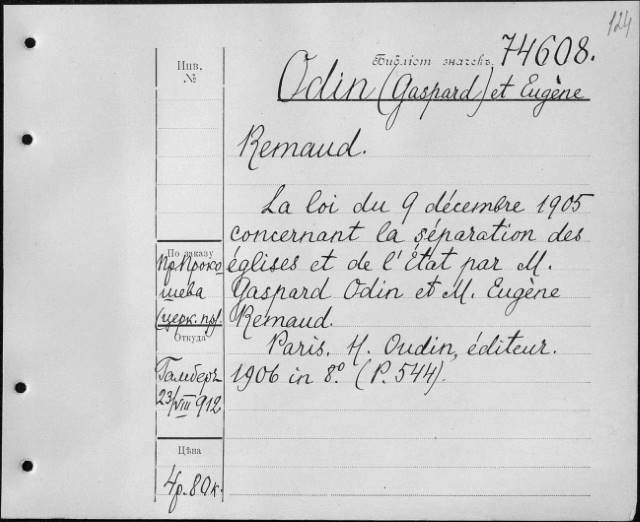 124
Библіот значекъ 74608.
Инв.
№
Odin (Gaspard) et Eugène
Remaud.
La loi du 9 décembre 1905
concernant la séparation des
églises et de l'État par M.
Gaspard Odin et M. Eugène
Remaud.
Paris. H. Oudin, éditeur.
1906 in 8º. (P. 544).
По заказу
Пр Проко
шева
(церк. пр).
Откуда
Гамберъ
23/VIII 912
Цѣна
4р. 80к.